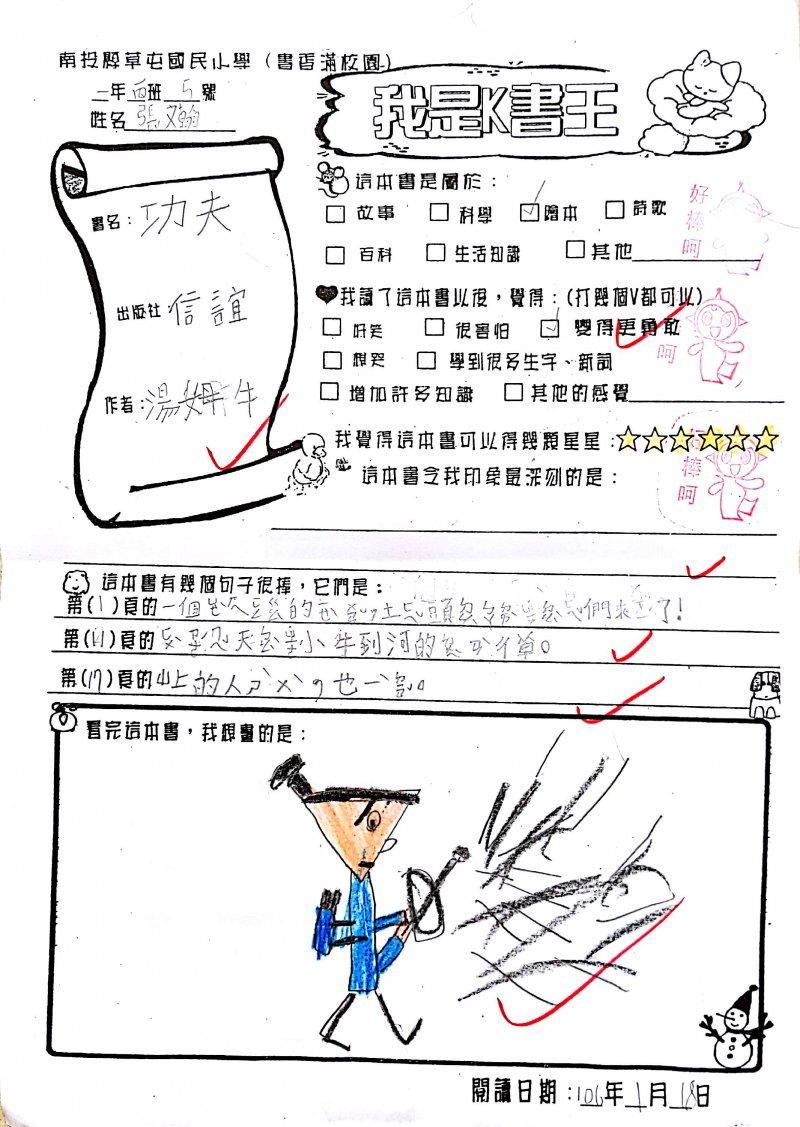 南投縣草屯國民小學(書香滿校園)
二年百班 5 號
姓名
我是K書王
書名:功夫
出版社 信誼
作者:湯姆牛
這本書是屬於:
□故事 □科學 □繪本 □詩歌
□百科 □生活知識 □其他
好棒呵
我讀了這本書以後,覺得:(打幾個V都可以)
□好笑 □很害怕 □變得更勇敢
□想哭 □學到很多生字、新詞
□增加許多知識 □其他的感覺
呵
我覺得這本書可以得幾顆星星:☆☆☆☆☆☆
這本書令我印象最深刻的是:
棒呵
這本書有幾個句子很棒,它們是:
第(1)頁的一個 的 來 了!
第(11)頁的 天 小牛到河的 算。
第(17)頁的山上的人 也一
看完這本書,我想畫的是:
閱讀日期:106年1月18日